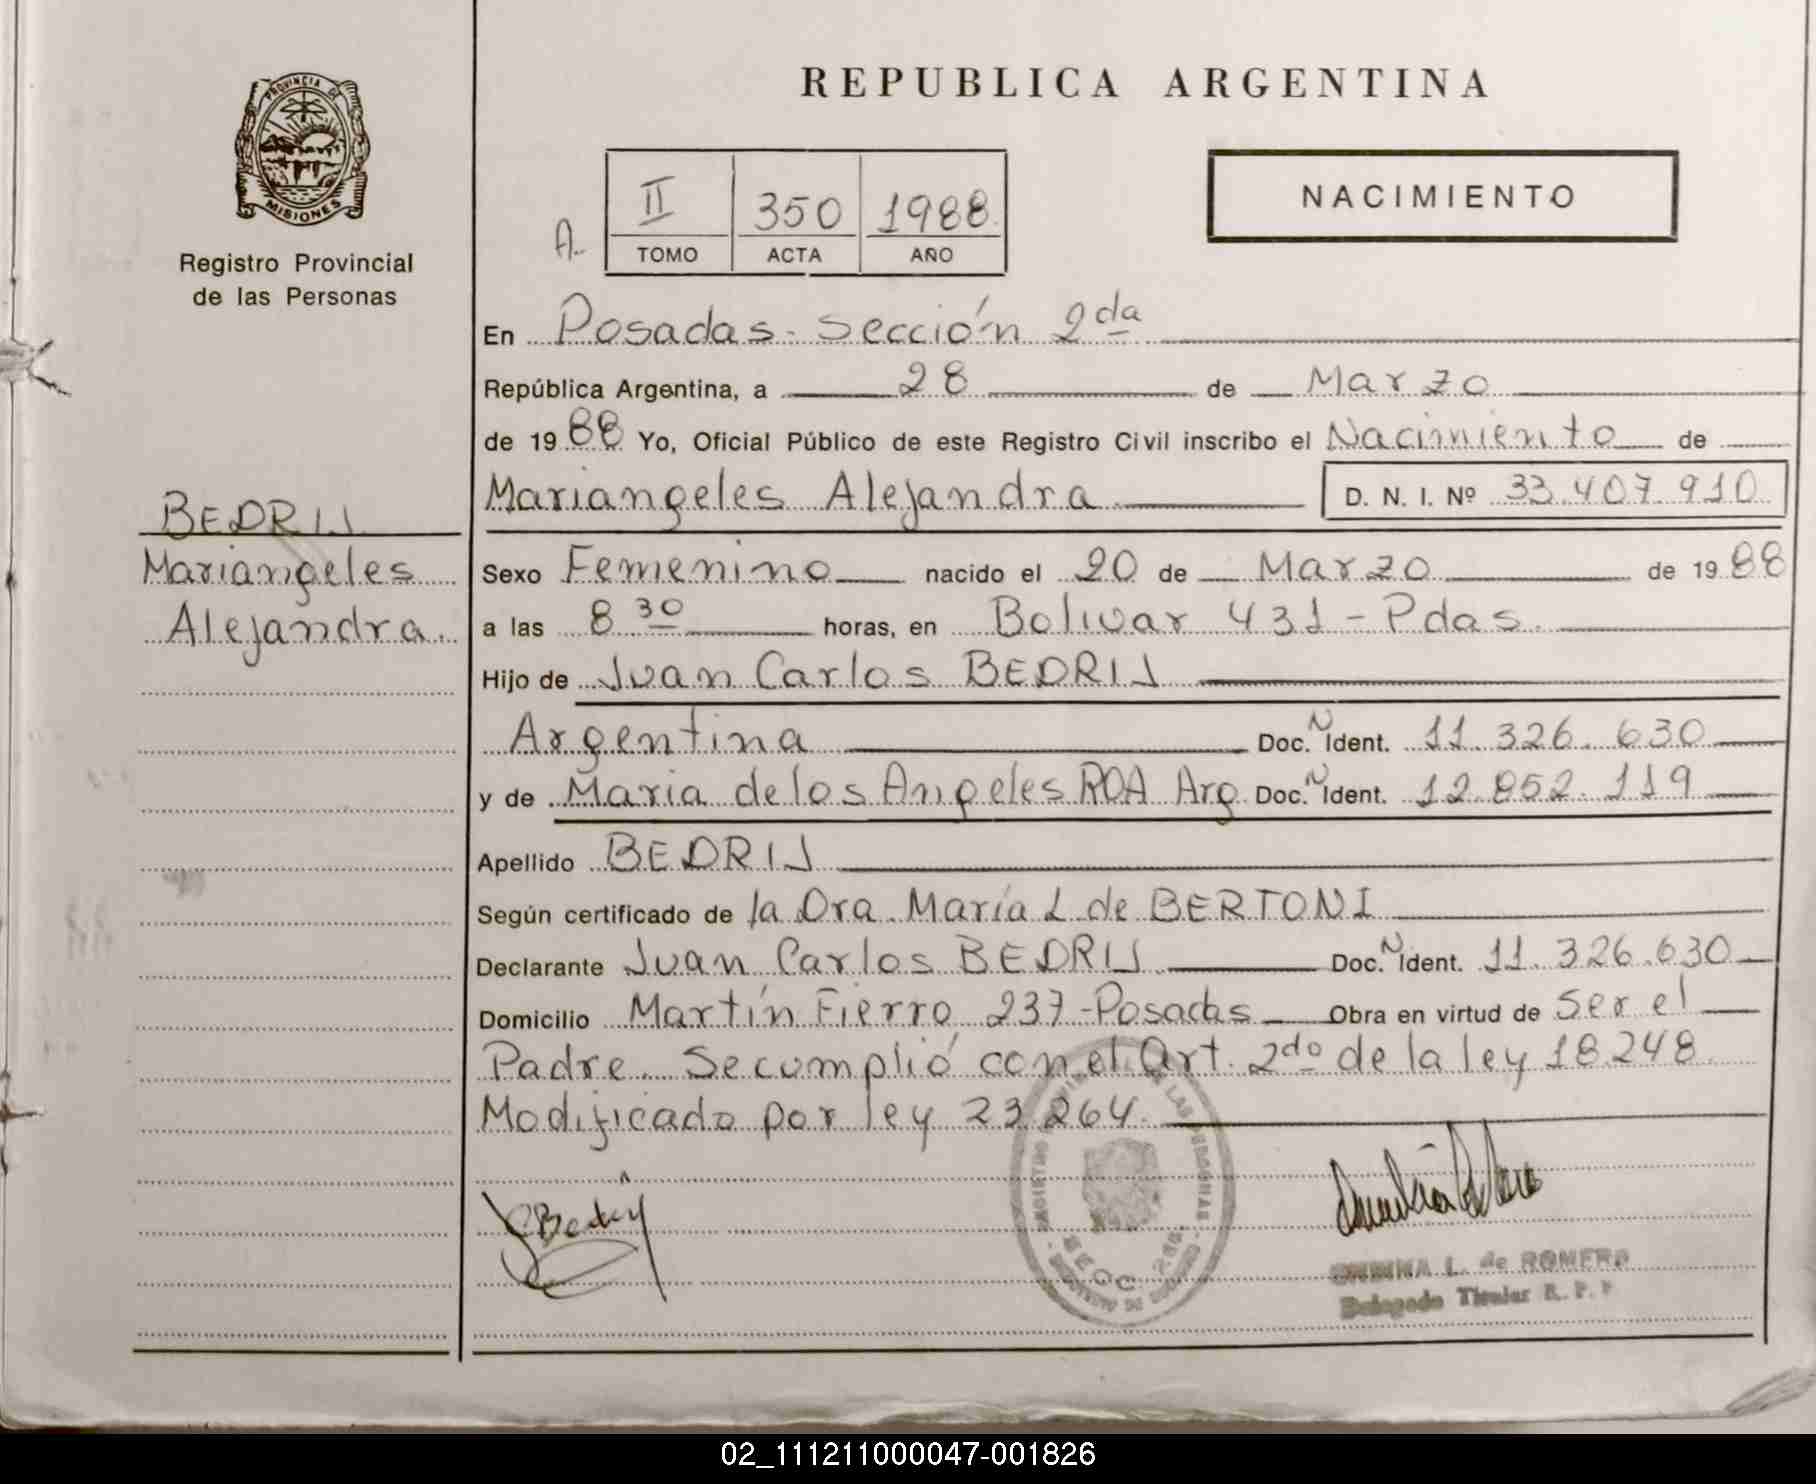 PROVINCIA DE
MISIONES
Registro Provincial
de las Personas
REPUBLICA ARGENTINA
NACIMIENTO
A.
II 350 1988
TOMO ACTA AÑO
En Posadas - Sección 2da
República Argentina, a 28 de Marzo
de 1988 Yo, Oficial Público de este Registro Civil inscribo el Nacimiento de
Mariangeles Alejandra D. N. I. Nº 33.407.910
BEDRIJ
Mariangeles
Alejandra.
Sexo Femenino nacido el 20 de Marzo de 1988
a las 8 30 horas, en Bolivar 431 - Pdas.
Hijo de Juan Carlos BEDRIJ
Argentina Doc. N Ident. 11.326.630
y de Maria de los Angeles ROA Arg Doc. N Ident. 12.852.119
Apellido BEDRIJ
Según certificado de la Dra. María L de BERTONI
Declarante Juan Carlos BEDRIJ Doc. N Ident. 11.326.630
Domicilio Martín Fierro 237 - Posadas Obra en virtud de Ser el
Padre. Se cumplió con el Art. 2do de la ley 18.248
Modificado por ley 23.264.
L. de ROMERO
Delegado Titular R. P. P
02_111211000047-001826